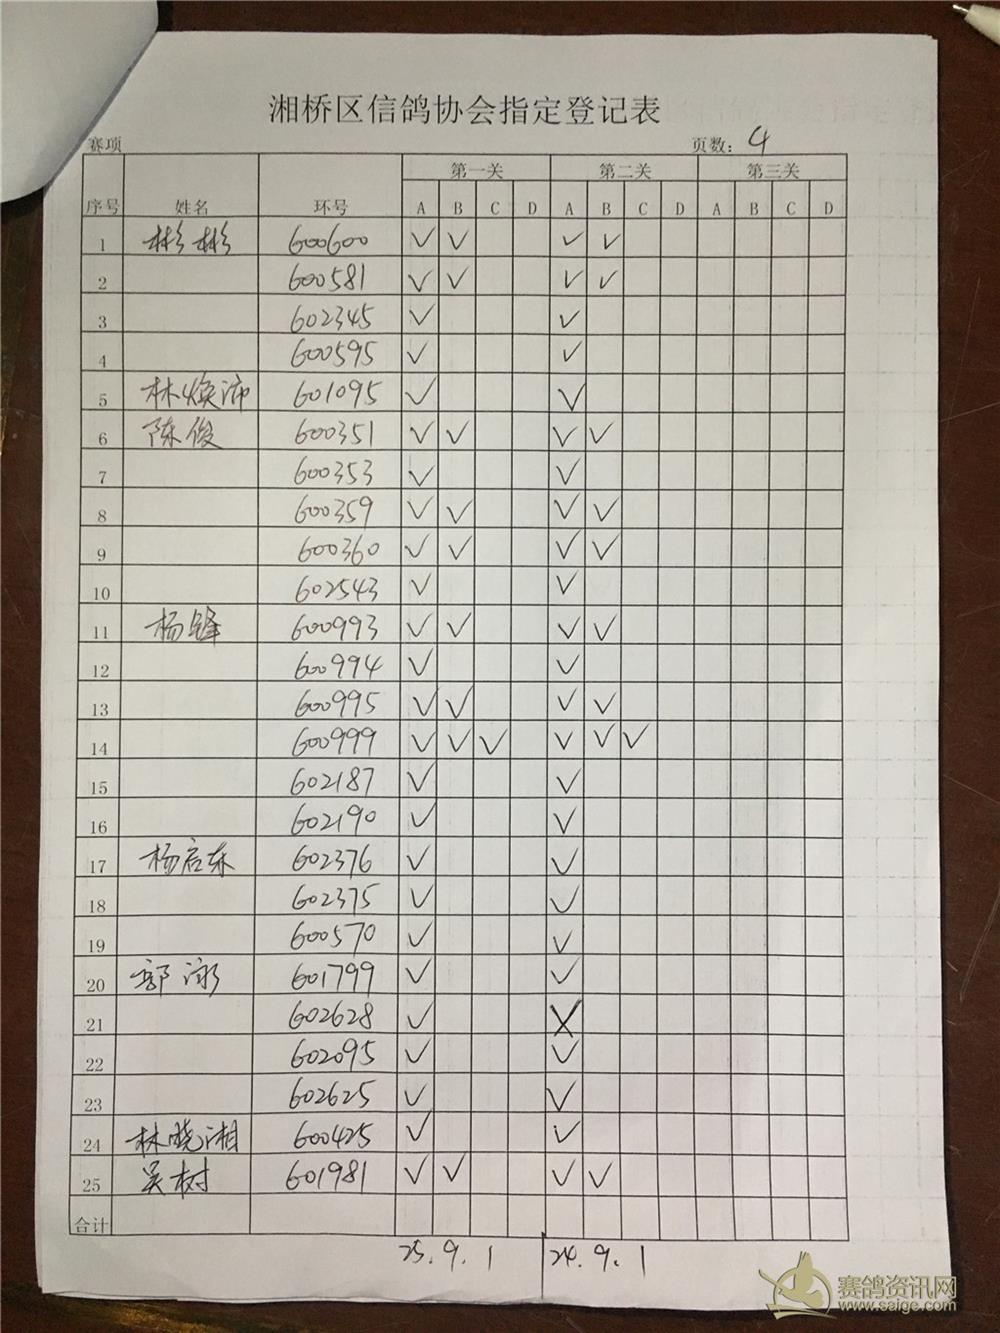 湘桥区信鸽协会指定登记表
赛项 页数: 4
第一关 第二关 第三关
序号 姓名 环号 A B C D A B C D A B C D
1 彬彬 600600 ✓ ✓ ✓ ✓
2 600581 ✓ ✓ ✓ ✓
3 602345 ✓ ✓
4 600595 ✓ ✓
5 林焕沛 601095 ✓ ✓
6 陈俊 600351 ✓ ✓ ✓ ✓
7 600353 ✓ ✓
8 600359 ✓ ✓ ✓ ✓
9 600360 ✓ ✓ ✓ ✓
10 602543 ✓ ✓
11 杨锋 600993 ✓ ✓ ✓ ✓
12 600994 ✓ ✓
13 600995 ✓ ✓ ✓ ✓
14 600999 ✓ ✓ ✓ ✓ ✓ ✓
15 602187 ✓ ✓
16 602190 ✓ ✓
17 杨启东 602376 ✓ ✓
18 602375 ✓ ✓
19 600570 ✓ ✓
20 郭泳 601799 ✓ ✓
21 602628 ✓ X
22 602095 ✓ ✓
23 602625 ✓ ✓
24 林晓湘 600425 ✓ ✓
25 吴树 601981 ✓ ✓ ✓ ✓
合计
25.9.1 24.9.1
赛鸽资讯网
www.saige.com